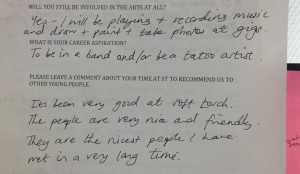 WILL YOU STILL BE INVOLVED IN THE ARTS AT ALL?
Yes - I will be playing + recording music
and draw + paint + take photos at gigs.
WHAT IS YOUR CAREER ASPIRATION?
To be in a band and/or be a tatoo artist.
PLEASE LEAVE A COMMENT ABOUT YOUR TIME AT ST TO RECOMMEND US TO
OTHER YOUNG PEOPLE.
Its been very good at soft touch.
The people are very nice and friendly.
They are the nicest people I have
met in a very long time.